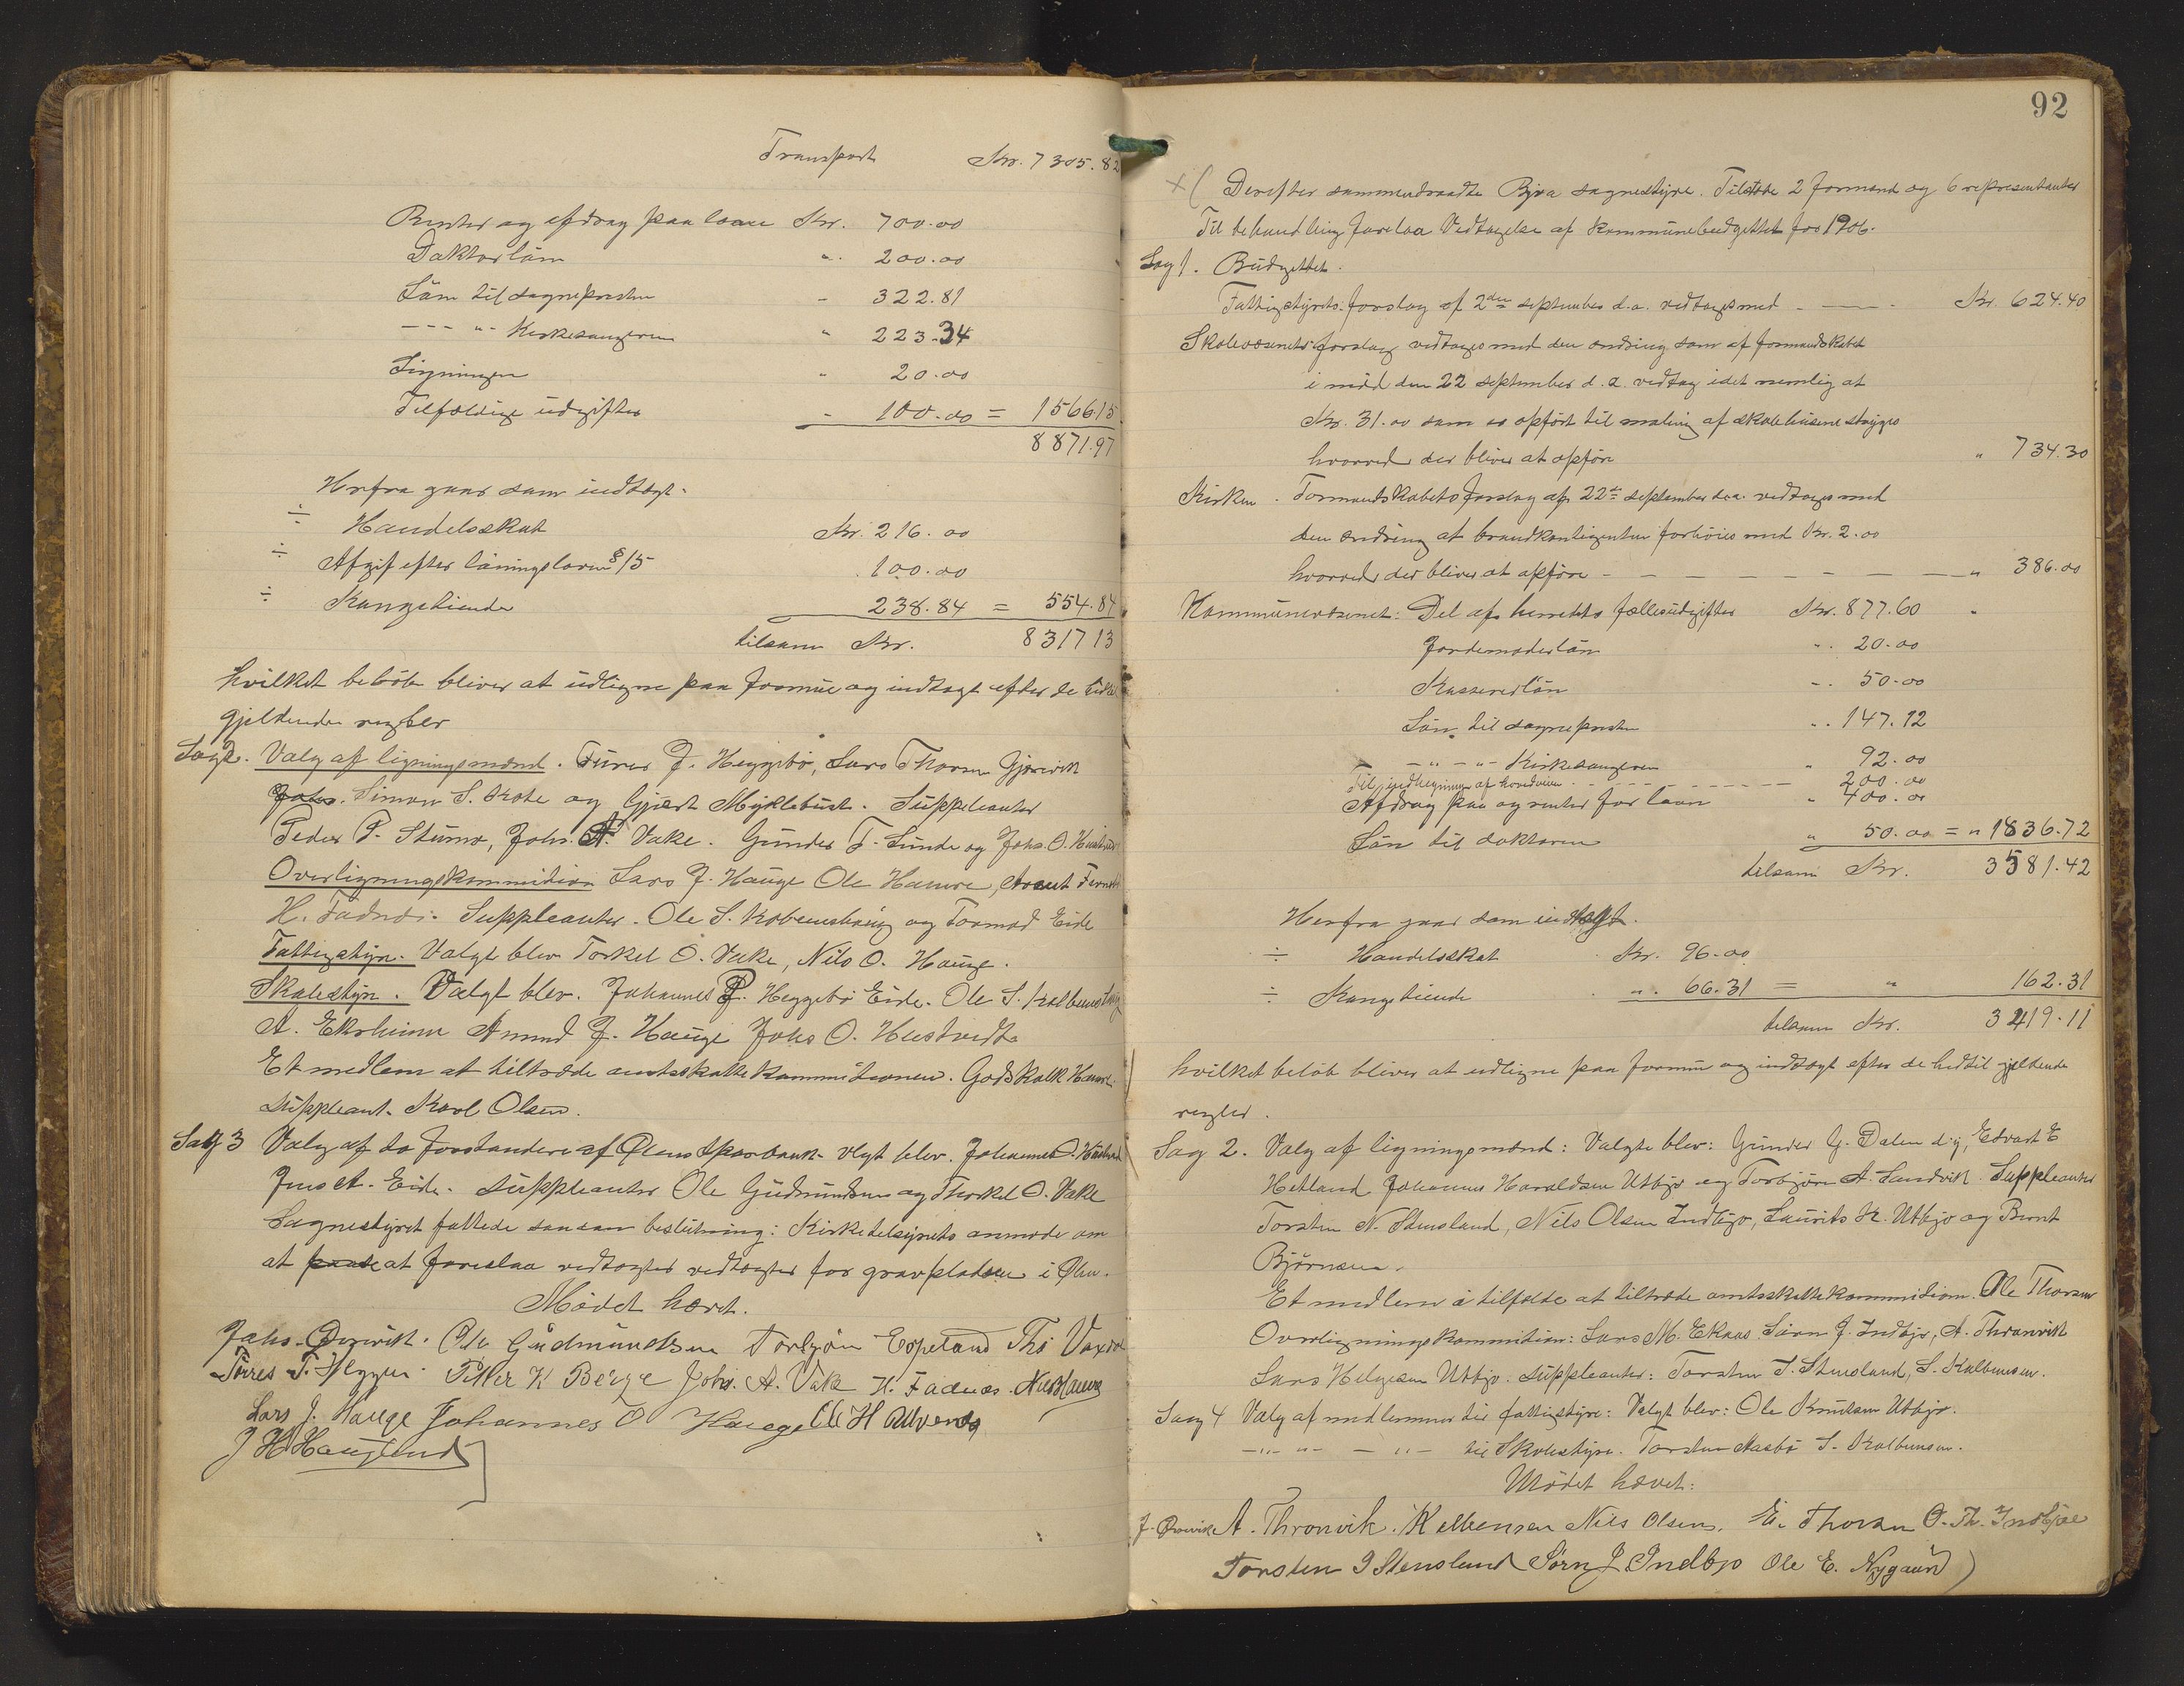 Transport Kr. 7305.82
Renter og afdrag paa laan Kr. 700.00
Doktorløn " 200.00
Løn til sognepresten - 322.81
--- "- Kirkesangeren " 223.34
Ligningen " 20.00
Tilfældige udgifter - 100.00 = 1566.15
8871.97
Herfra gaar som indtægt.
÷ Handelsskat Kr. 216.00
÷ Afgift efter løningsloven § 15 100.00
÷ Kongetiende 238.84 = 554.84
tilsam Kr. 8317 13
hvilket beløb bliver at udligne paa formue og indtægt efter de
gjeldende regler
Sag 2. Valg af ligningsmænd. Tørres J. Heggebø, Lars Thorsen Gjerevik
Johs. Simon S. Kobe og Gjert Myklebust. Suppleanter
Peder P. Stumo, Johs. A. Vake. Gunder T. Sunde og Johs. O. Hustvedt
Overligningskommision Lars J. Hauge Ole Hamre,
H. Fadnes. Suppleanter. Ole S. Kolbenstveig og Tormod Eide
Fattigstyre. Valgt blev Torkel O. Vake, Nils O. Hauge.
Skolestyre. Valgt blev. Johannes J. Heggebø Eide. Ole S. Kolbenstveig
A. Ekrheim Amund J. Hauge Johs O. Hustvedt.
Et medlem at tiltræde amtsskattekommitionen. Godskalk Hamre.
suppleant. Karl Olsen.
Sag 3 Valg af to forstandere af Ølens Sparbank. vlgt blev. Johannes O. Hustvedt
Jens A. Eide. suppleanter Ole Gudmundsen og Thorkel O. Vake
Sognestyret fattede saadan beslutning: Kirketilsynets anmode om
at at foreslaa vedtægter vedtægter for gravpladsen i Ølen.
Mødet hævet.
Johs. Øvrevik. Ole Gudmundsen Torbjørn Espeland Ths Vaxvik
Tørres T. Heggen. Peder K Berge Johs. A. Vake H. Fadnes. Nils Hauge
Lars J. Hauge Johannes O Hauge Ole H Alvends
J H Haugland
92
x( Derefter sammentraadte Bjoa sognestyre. Tilstede 2 formænd og 6 representanter
Til behandling forelaa Vedtagelse af Kommunebudgettet for 1906.
Sag 1. Budgettet.
Fattigstyrets forslag af 2den september d.a. vedtages med - Kr. 624.40
Skolevæsenets forslag vedtages med den ændring som af formandskabet
i møde den 22 september d.a. vedtog idet nemlig at
Kr. 31.00 som er opført til maling af skolehusene stryges
hvorved der bliver at opføre " 734.30
Kirken. Formandskabets forslag af 22de september d.a. vedtages med
den ændring at brandkontigenten forhøies med Kr. 2.00
hvorved der bliver at opføre - - - " 386.00
Kommunevæsenet: Del af herredets fællesudgifter Kr. 877.60
Jordemoderløn " 20.00
Kassererløn " 50.00
Løn til sognepresten " 147.12
- " - " - Kirkesangeren " 92.00
Til indhegning af hovedveien - - - 200.00
Afdrag paa og renter for laan " 400.00
Løn til doktoren " 50.00 = " 1836.72
tilsam Kr. 3581.42
Herfra gaar som indtægt.
÷ Handelsskat Kr. 96.00
÷ Kongetiende " 66.31 = " 162.31
tilsam Kr. 3419.11
hvilket beløb bliver at udligne paa formue og indtægt efter de hidtil gjeldende
regler.
Sag 2. Valg af ligningsmænd: Valgte blev: Gunder G. Dalen d.y, Edvart E
Hetland Johannes Haraldsen Utbjo og Torbjørn A. Sandvik. Suppleanter
Torsten N. Stensland, Nils Olsen Indbjo, Laurits K. Utbjo og Bernt
Bjørnsen.
Et medlem i tilfælde at tiltræde amtsskattekommision. Ole Thorsen
Overligningskommition: Lars M. Ekaas Sørn J. Indbjo, A. Thronvik
Lars Helgesen Utbjo. suppleanter: Torsten J. Stensland, S. Kolbensen.
Sag 4 Valg af medlemmer til fattigstyre: Valgt blev: Ole Knudsen Utbjo.
-"- "- - "- til Skolestyre. Torsten Aasbø S. Kolbensen.
Mødet hævet:
J. Øvrevik A. Thronvik. Kolbensen Nils Olsen. E. Thorsen O. Th. Indbjoe
Torsten J Stensland Sørn J. Indbjo Ole E. Nygaard)